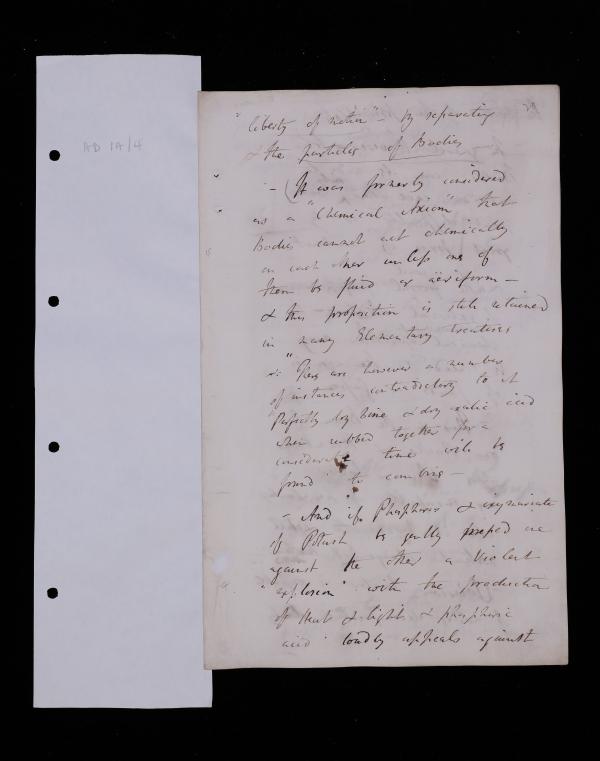 AD 1A/4
"liberty of motion" - by separating
& the particles of Bodies
- (It was formerly considered
as a "Chemical Axiom" that
Bodies cannot act chemically
on each other unless one of
them be fluid or aëriform -
& this proposition is still retained
in many Elementary treatises
"There are however a number
of instances contradictory to it
Perfectly dry lime & dry oxalic acid
when rubbed together for a
considerable time will be
found to combine -
- And if Phosphorus & oxymuriate
of Potash be gently pressed one
against the other a Violent
"explosion" with the production
of Heat & light & phosphoric
acid loudly appeals against